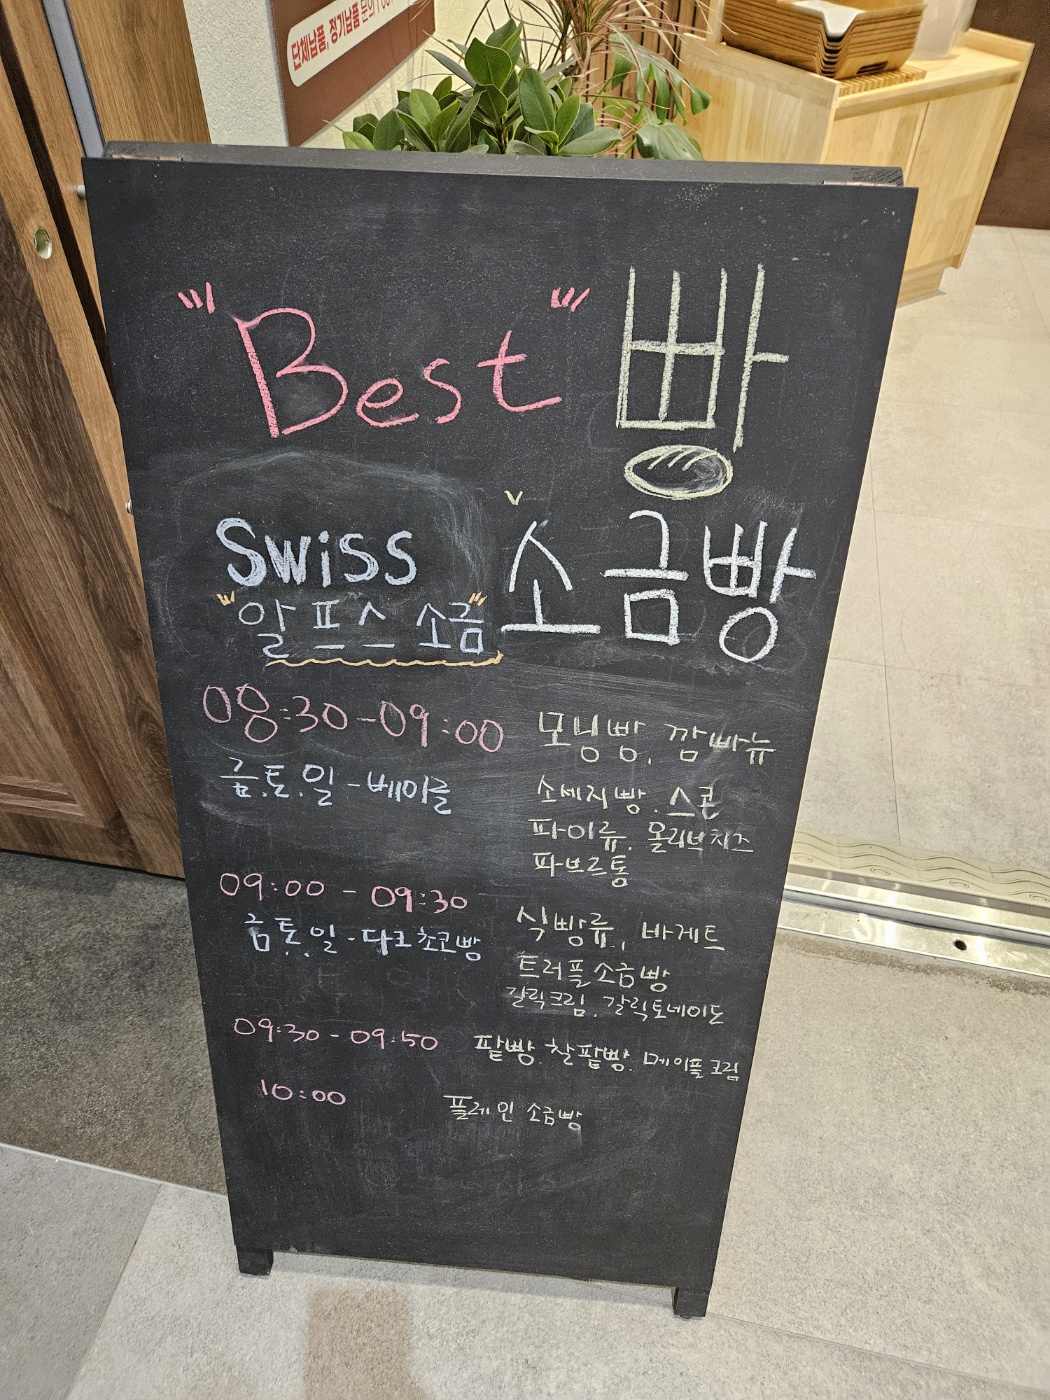 단체납품, 정기납품 문의
"Best" 빵
Swiss
"알프스 소금"
소금빵
08:30-09:00 모닝빵, 깜빠뉴
금.토.일-베이글 소세지빵. 스콘
파이류, 올리브치즈
파브르통
09:00 - 09:30 식빵류, 바게트
금.토.일-다크초코빵 트러플소금빵
갈릭크림, 갈릭토네이도
09:30 - 09:50 팥빵, 찰팥빵, 메이플크림
10:00 플레인 소금빵